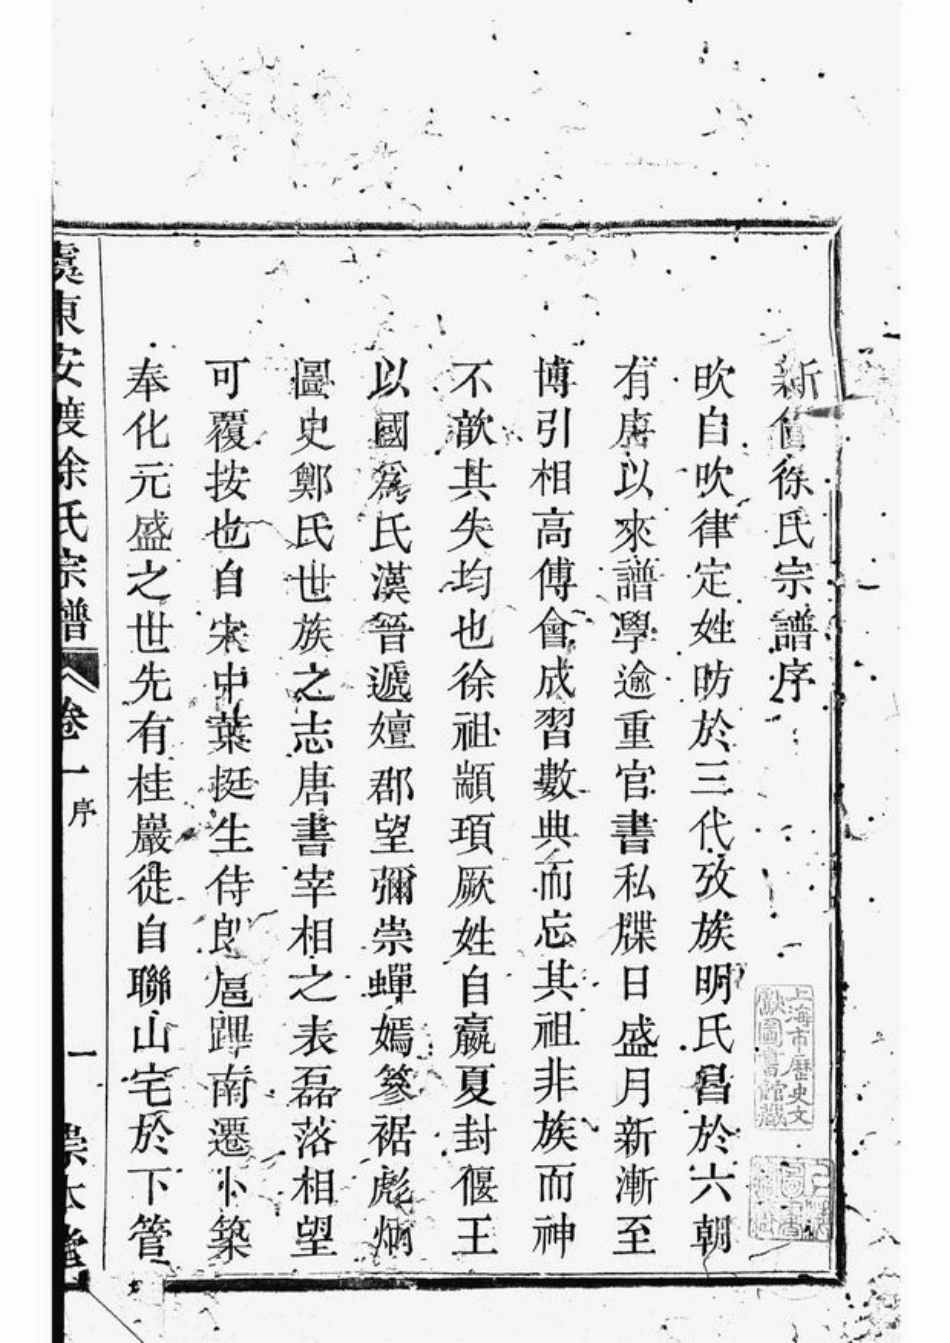 新修徐氏宗譜序
昳自吹律定姓昉於三代攷族明氏昌於六朝
有唐以來譜學逾重官書私牒日盛月新漸至
博引相高傅會成習數典而忘其祖非族而神
不歆其失均也徐祖顓頊厥姓自嬴夏封偃王
以國爲氏漢晉遞嬗郡望彌崇蟬嫣簪裾彪炳
圖史鄭氏世族之志唐書宰相之表磊落相望
可覆按也自宋中葉挺生侍郎扈蹕南遷卜築
奉化元盛之世先有桂巖徙自聯山宅於下管
虞東安渡徐氏宗譜
卷一
序
一
崇本堂
上海市歷史文
獻圖書館藏